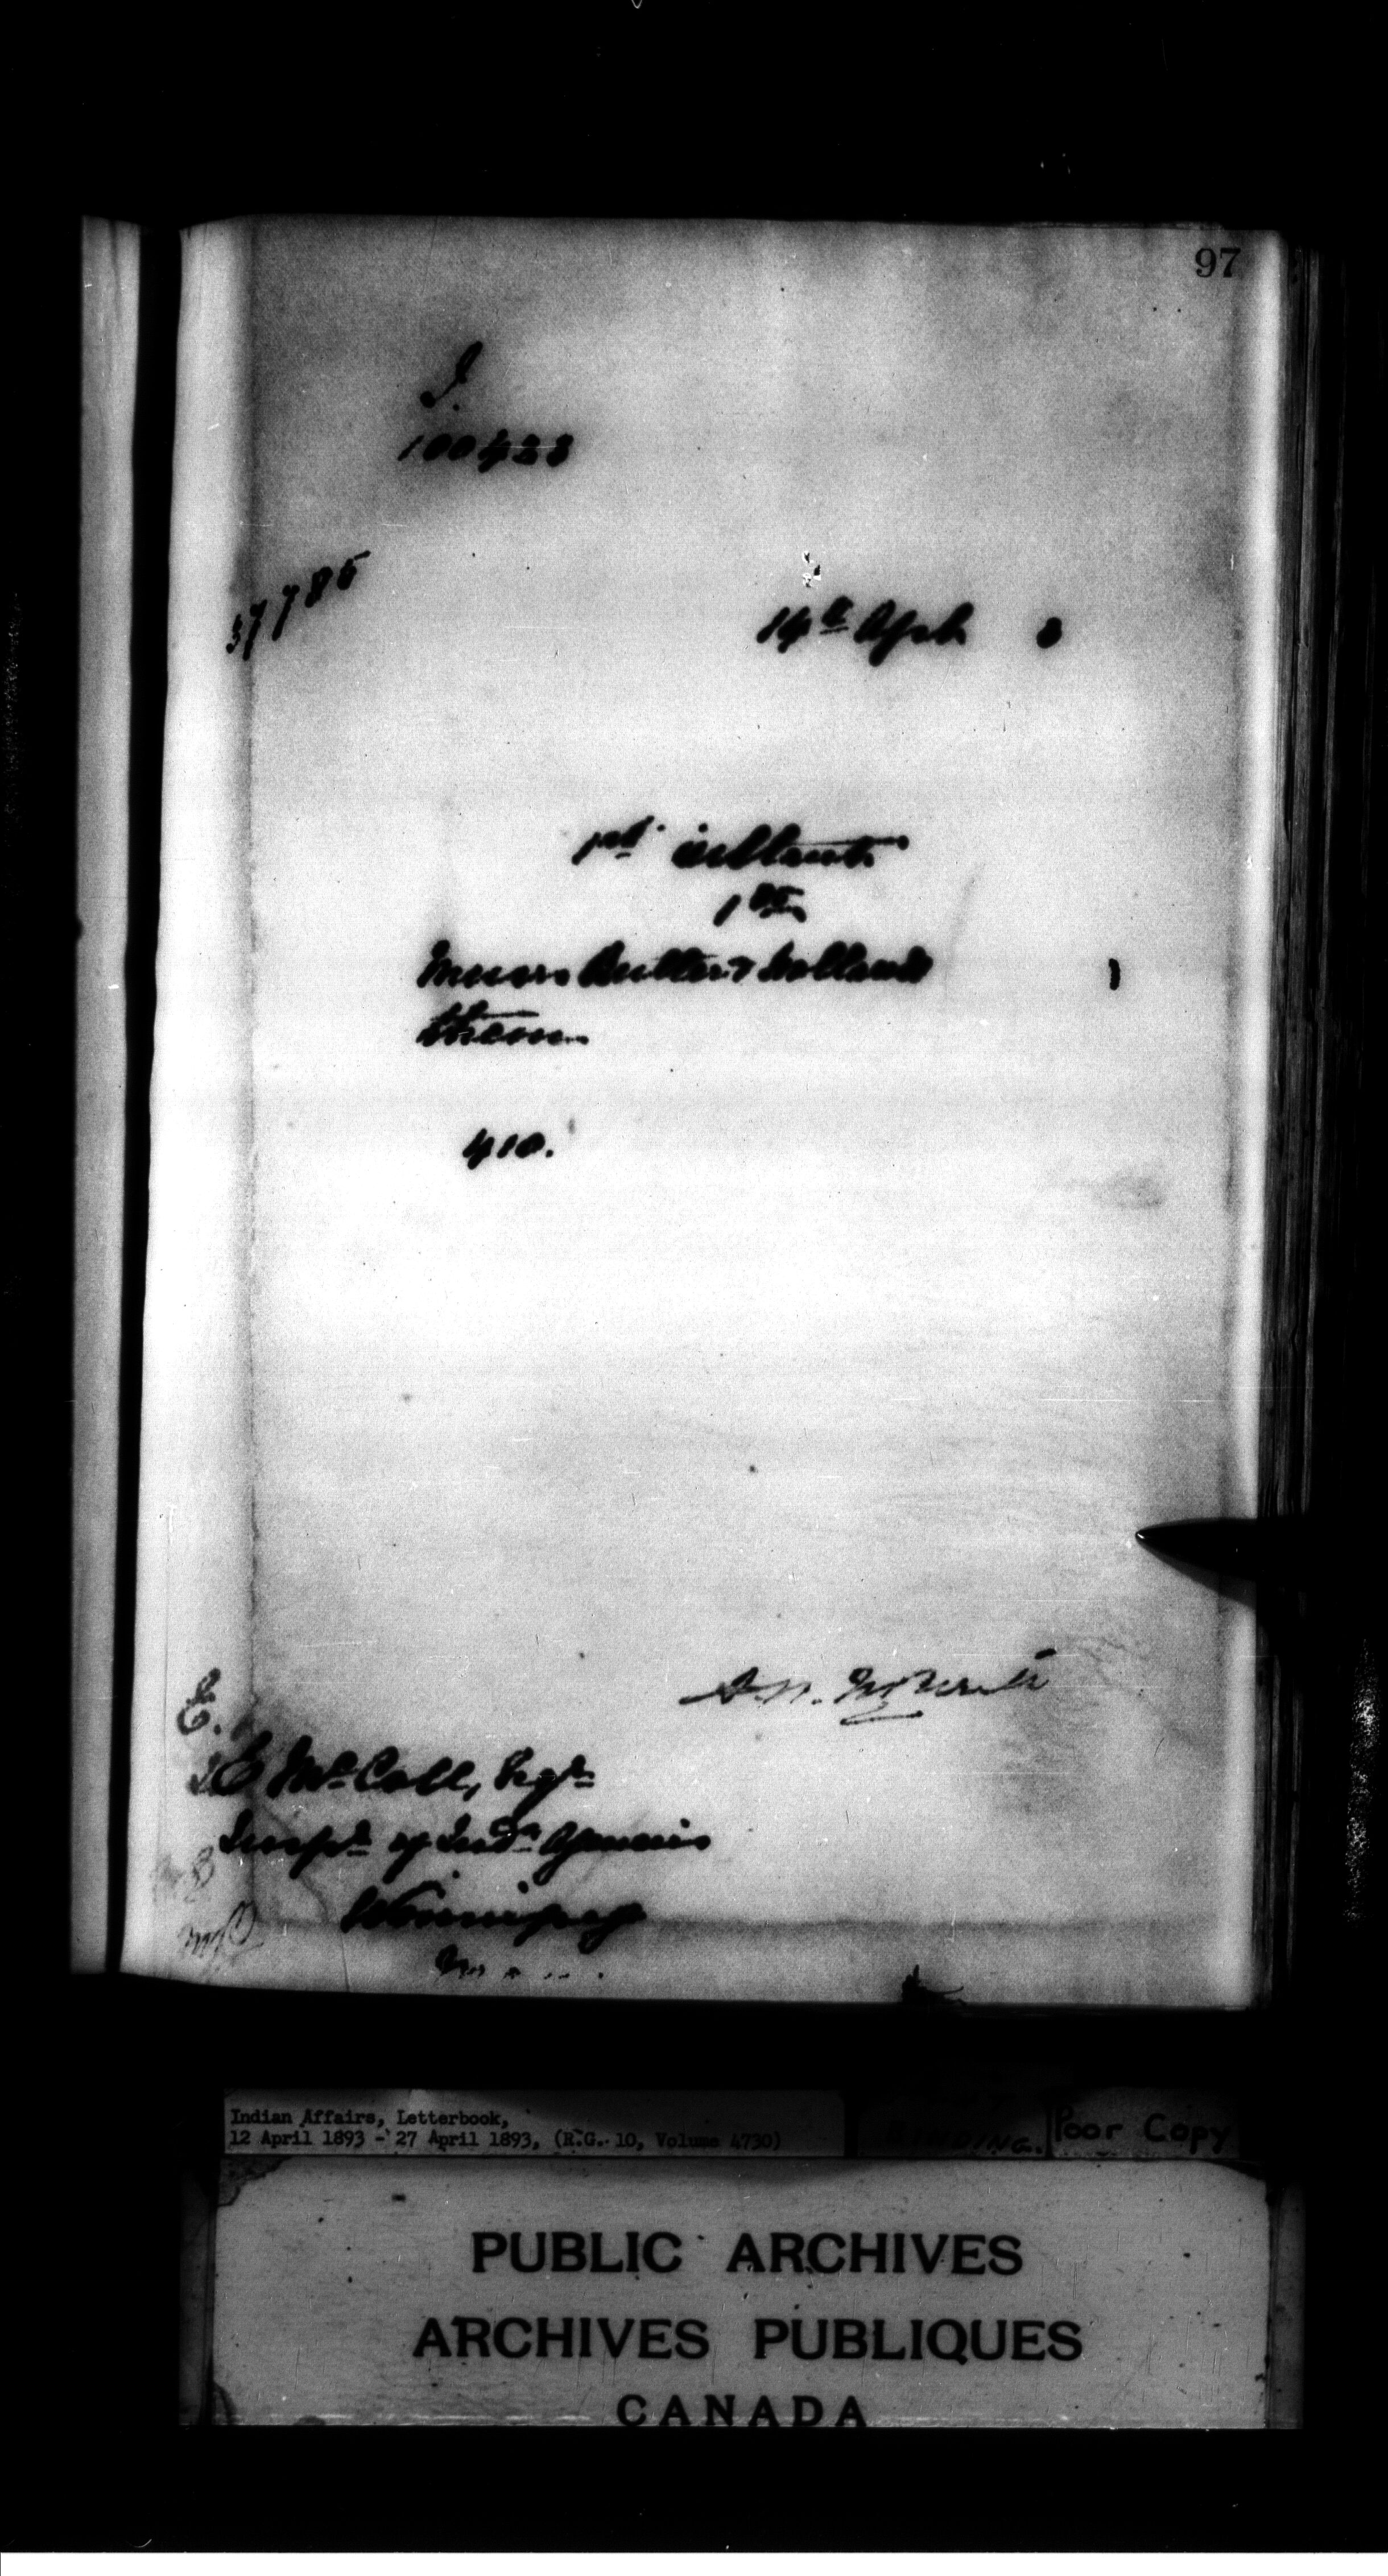 97
100423
37785
14th Apl 3
1st instant
1 00
Messrs Butler & Holland
them
410.
E.
E McColl, Esqre
Inspr of Indn Agencies
Winnipeg
Indian Affairs, Letterbook,
12 April 1893 - 27 April 1893, (R.G. 10, Volume 4730)
BINDING.
Poor Copy
PUBLIC ARCHIVES
ARCHIVES PUBLIQUES
CANADA